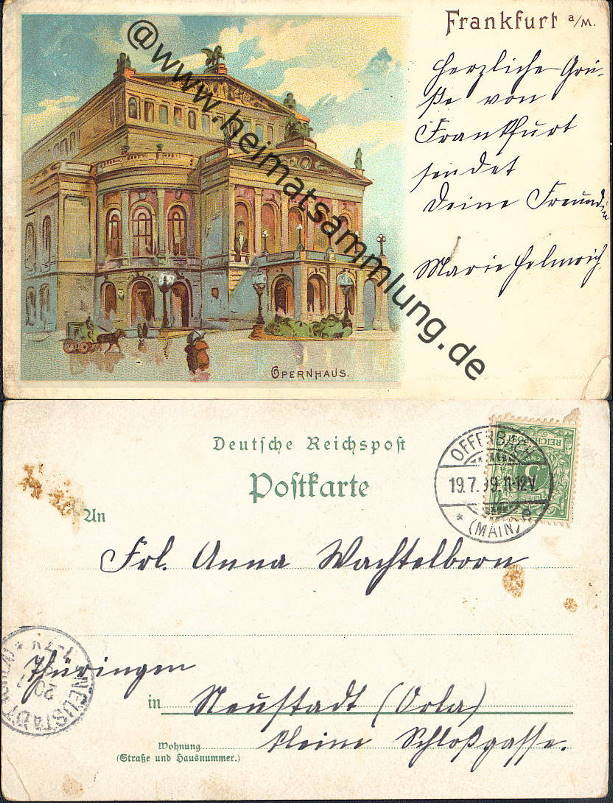 Frankfurt a/M.
Herzliche Grü-
ße von
Frankfurt
sendet
Deine Freundin
Marie Helmrich
OPERNHAUS.
@www.heimatsammlung.de
Deutsche Reichspost
Postkarte
An
Frl. Anna Wachtelborn
Thüringen
in Neustadt (Orla)
Wohnung
(Straße und Hausnummer.)
kleine Schloßgasse.
OFFENBACH
19.7.99.11-12V.
* (MAIN)
REICHSPOST
5
NEUSTADT
20